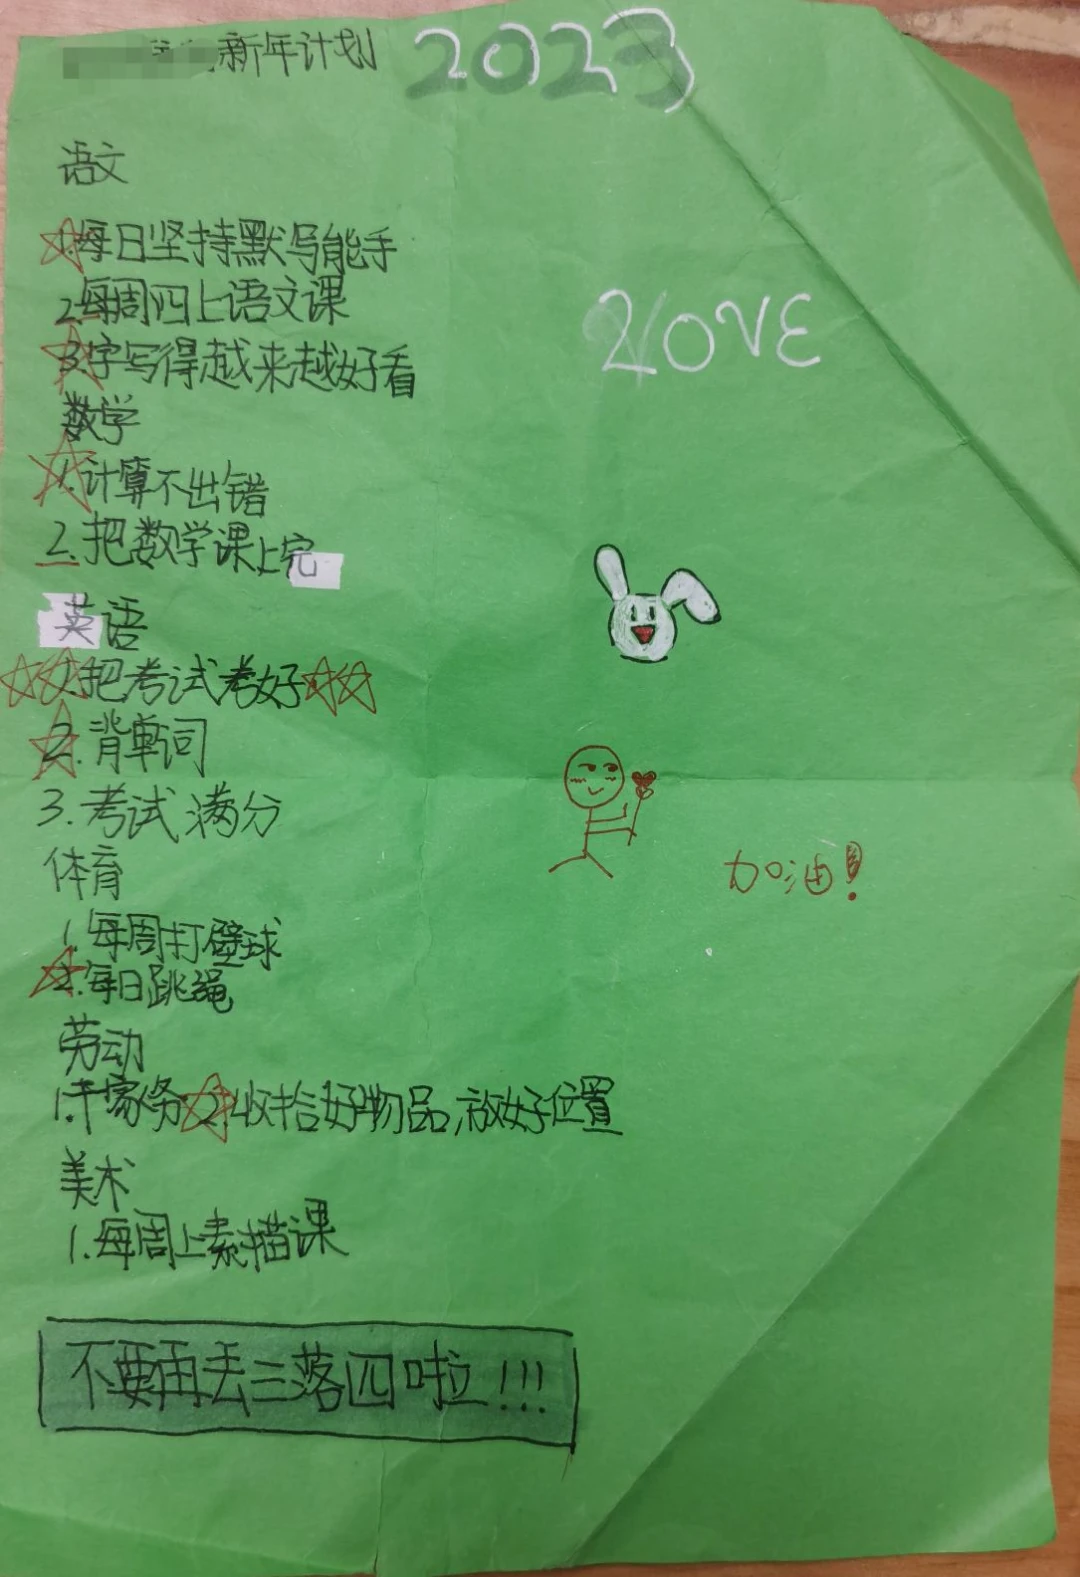 新年计划 2023
语文
1.每日坚持默写能手
2.每周四上语文课
LOVE
3.字写得越来越好看
数学
1.计算不出错
2.把数学课上完
英语
1.把考试考好
2.背单词
3.考试满分
体育
加油!
1.每周打壁球
2.每日跳绳
劳动
1.干家务 2.收拾好物品,放好位置
美术
1.每周上素描课
不要再丢三落四啦!!!